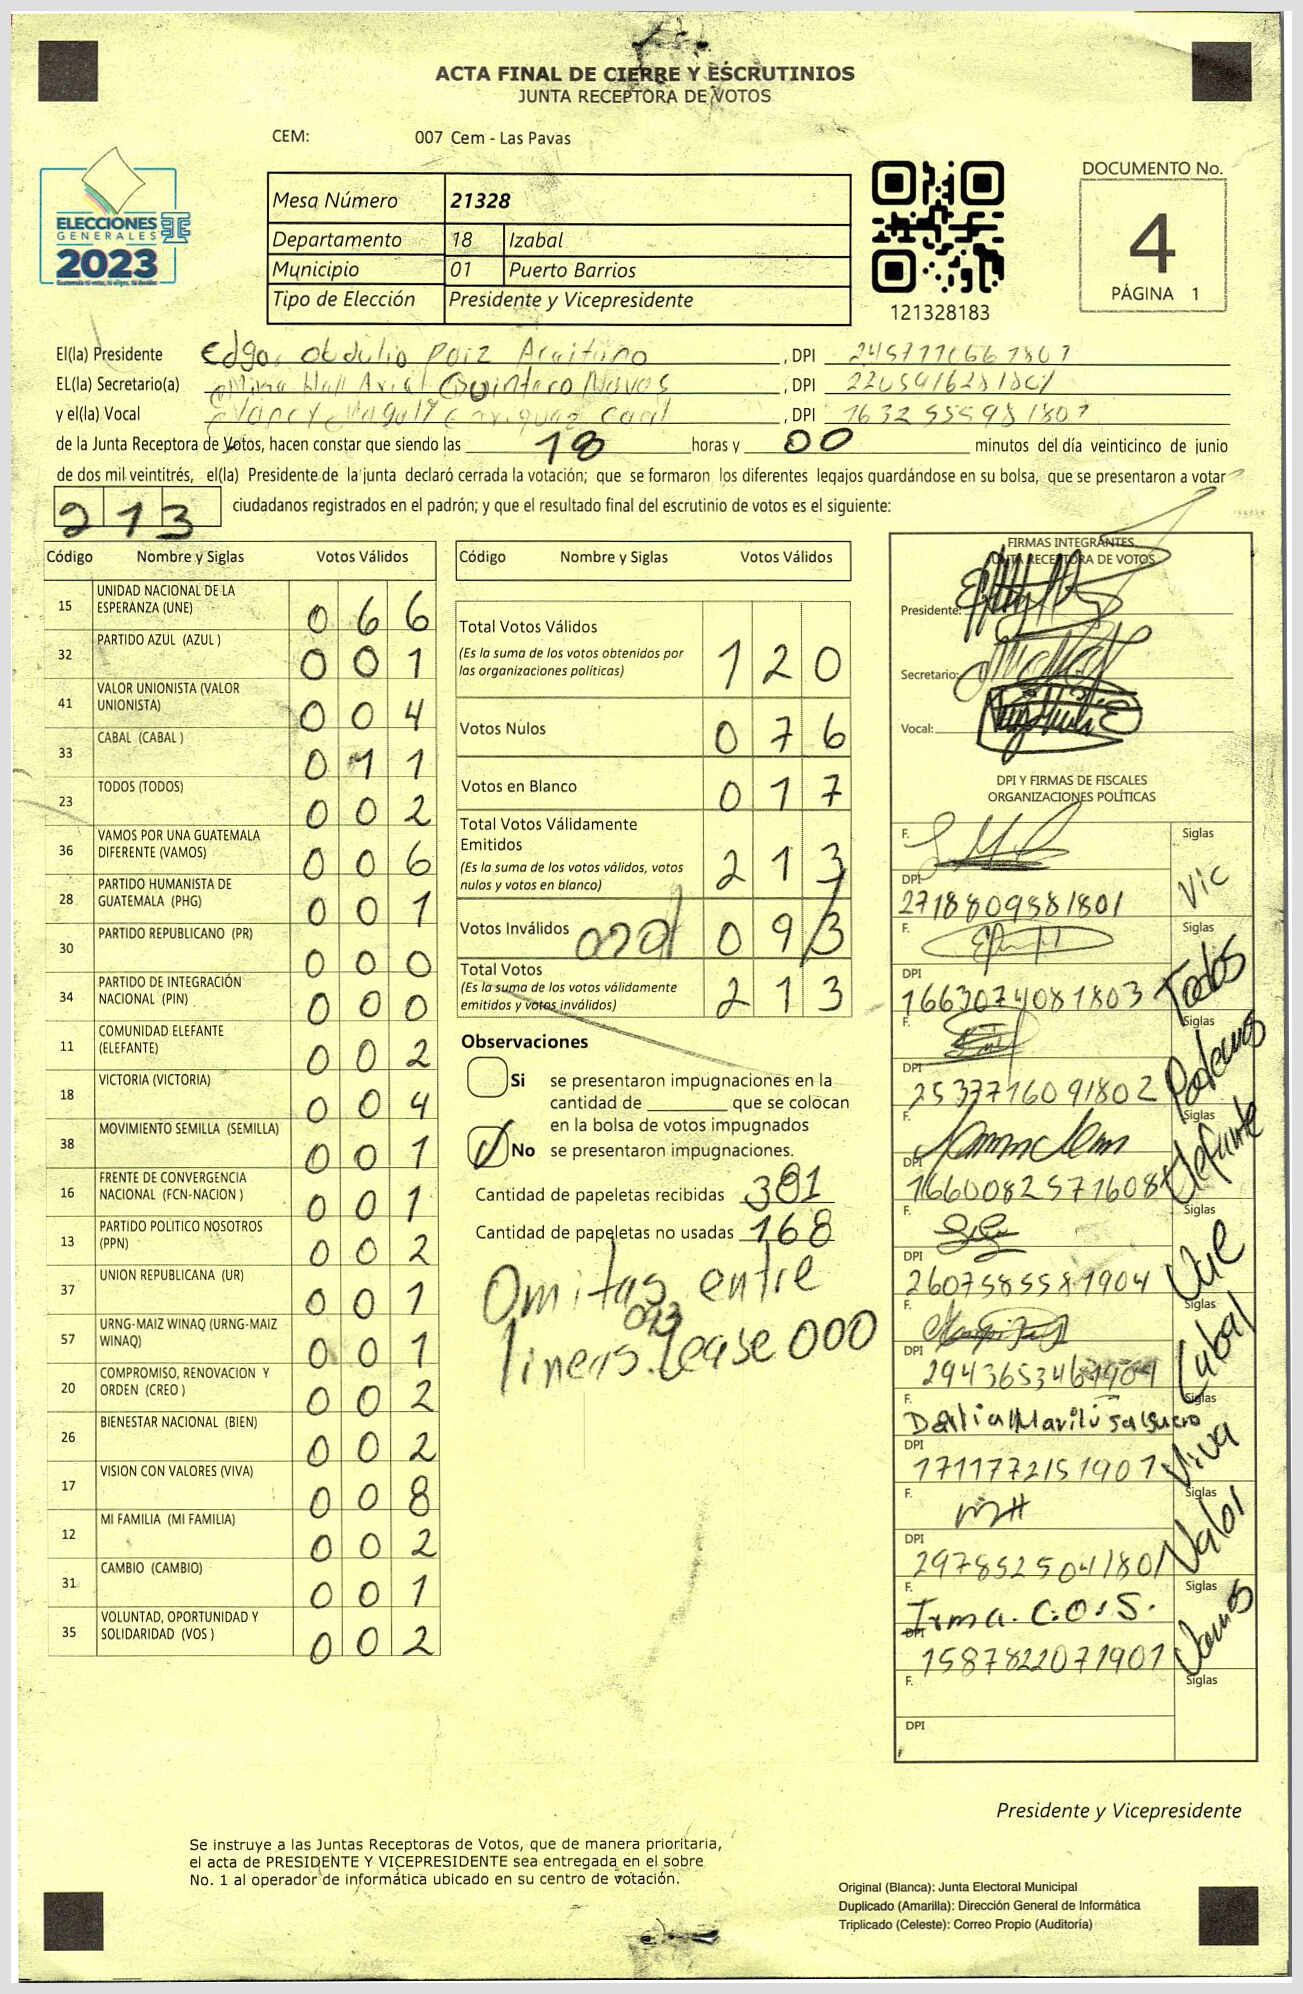 ACTA FINAL DE CIERRE Y ESCRUTINIOS
JUNTA RECEPTORA DE VOTOS
CEM: 007 Cem - Las Pavas
ELECCIONES
GENERALES
2023
Mesa Número 21328
Departamento 18 Izabal
Municipio 01 Puerto Barrios
Tipo de Elección Presidente y Vicepresidente
121328183
DOCUMENTO No.
4
PÁGINA 1
El(la) Presidente Edgar Obdulio Paiz , DPI
EL(la) Secretario(a) Quintero Navas , DPI
y el(la) Vocal , DPI 1632555981801
de la Junta Receptora de Votos, hacen constar que siendo las 18 horas y 00 minutos del día veinticinco de junio
de dos mil veintitrés, el(la) Presidente de la junta declaró cerrada la votación; que se formaron los diferentes legajos guardándose en su bolsa, que se presentaron a votar
213 ciudadanos registrados en el padrón; y que el resultado final del escrutinio de votos es el siguiente:
Código Nombre y Siglas Votos Válidos
15 UNIDAD NACIONAL DE LA ESPERANZA (UNE) 066
32 PARTIDO AZUL (AZUL ) 001
41 VALOR UNIONISTA (VALOR UNIONISTA) 004
33 CABAL (CABAL ) 011
23 TODOS (TODOS) 002
36 VAMOS POR UNA GUATEMALA DIFERENTE (VAMOS) 006
28 PARTIDO HUMANISTA DE GUATEMALA (PHG) 001
30 PARTIDO REPUBLICANO (PR) 000
34 PARTIDO DE INTEGRACIÓN NACIONAL (PIN) 000
11 COMUNIDAD ELEFANTE (ELEFANTE) 002
18 VICTORIA (VICTORIA) 004
38 MOVIMIENTO SEMILLA (SEMILLA) 001
16 FRENTE DE CONVERGENCIA NACIONAL (FCN-NACION ) 001
13 PARTIDO POLITICO NOSOTROS (PPN) 002
37 UNION REPUBLICANA (UR) 001
57 URNG-MAIZ WINAQ (URNG-MAIZ WINAQ) 001
20 COMPROMISO, RENOVACION Y ORDEN (CREO ) 002
26 BIENESTAR NACIONAL (BIEN) 002
17 VISION CON VALORES (VIVA) 008
12 MI FAMILIA (MI FAMILIA) 002
31 CAMBIO (CAMBIO) 001
35 VOLUNTAD, OPORTUNIDAD Y SOLIDARIDAD (VOS ) 002
Código Nombre y Siglas Votos Válidos
Total Votos Válidos 120
(Es la suma de los votos obtenidos por
las organizaciones políticas)
Votos Nulos 076
Votos en Blanco 017
Total Votos Válidamente
Emitidos 213
(Es la suma de los votos válidos, votos
nulos y votos en blanco)
Votos Inválidos 093
Total Votos 213
(Es la suma de los votos válidamente
emitidos y votos inválidos)
Observaciones
Si se presentaron impugnaciones en la
cantidad de ________ que se colocan
en la bolsa de votos impugnados
No se presentaron impugnaciones.
Cantidad de papeletas recibidas 381
Cantidad de papeletas no usadas 168
Omitas entre
093
lineas. Lease 000
FIRMAS INTEGRANTES
JUNTA RECEPTORA DE VOTOS
Presidente:
Secretario:
Vocal:
DPI Y FIRMAS DE FISCALES
ORGANIZACIONES POLÍTICAS
F. Siglas
DPI 2718809581801 Vic
F. Siglas
DPI 1663074081803 Todos
F. Siglas
DPI 2537716091802 Podemos
F. Siglas
DPI Elefante
F. Siglas
DPI 2607585581904 Une
F. Siglas
DPI Cabal
F. Siglas
DPI 1711772151901 Viva
F. Siglas
DPI 2978525041801 Valor
F. Irma. C.O.S. Siglas
DPI 1587822071901 Vamos
F. Siglas
DPI
Presidente y Vicepresidente
Se instruye a las Juntas Receptoras de Votos, que de manera prioritaria,
el acta de PRESIDENTE Y VICEPRESIDENTE sea entregada en el sobre
No. 1 al operador de informática ubicado en su centro de votación.
Original (Blanca): Junta Electoral Municipal
Duplicado (Amarilla): Dirección General de Informática
Triplicado (Celeste): Correo Propio (Auditoría)